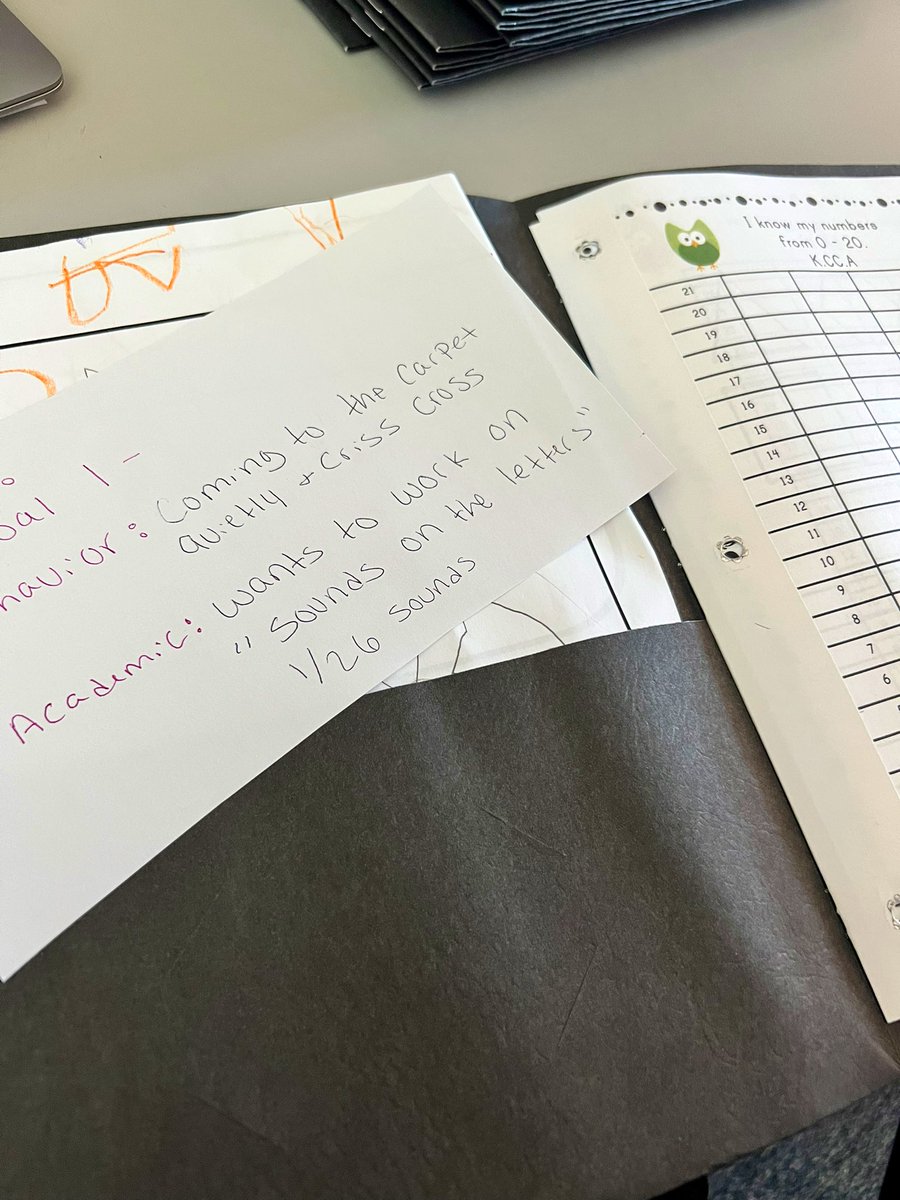 oal 1 -
havior: Coming to the Carpet
quietly + Criss Cross
Academic: Wants to work on
"sounds on the letters"
1/26 sounds
I know my numbers
from 0 - 20.
K.CC.A
21
20
19
18
17
16
15
14
13
12
11
10
9
8
7
6